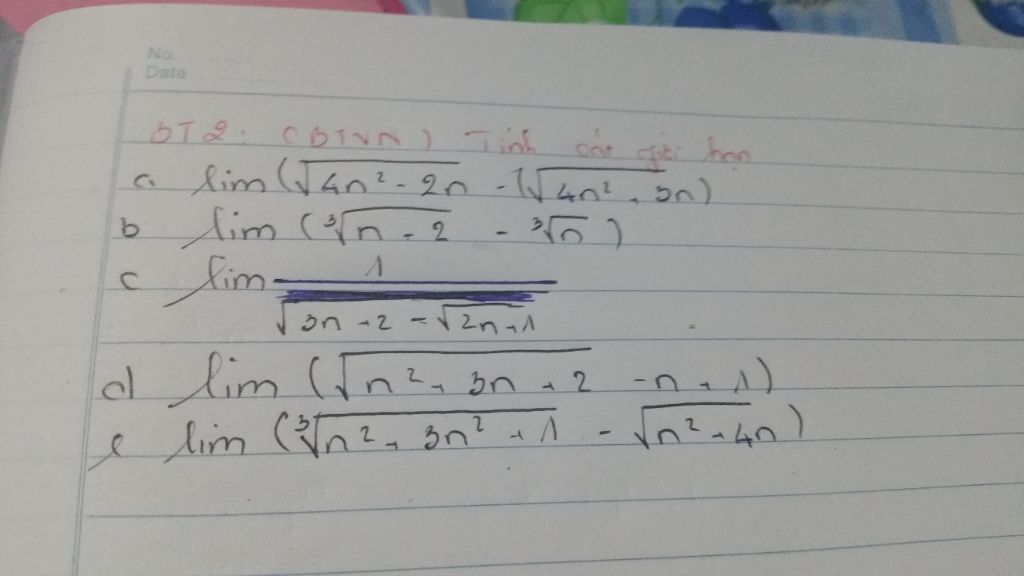 No.
Date
BT2: (BTVN) Tính các giới hạn
a. lim(√4n² - 2n - (√4n² + 3n)
b lim (³√n + 2 - ³√n)
c lim 1
√3n + 2 - √2n+1
d lim (√n² + 3n + 2 - n + 1)
e lim (³√n² + 3n² + 1 - √n² + 4n)